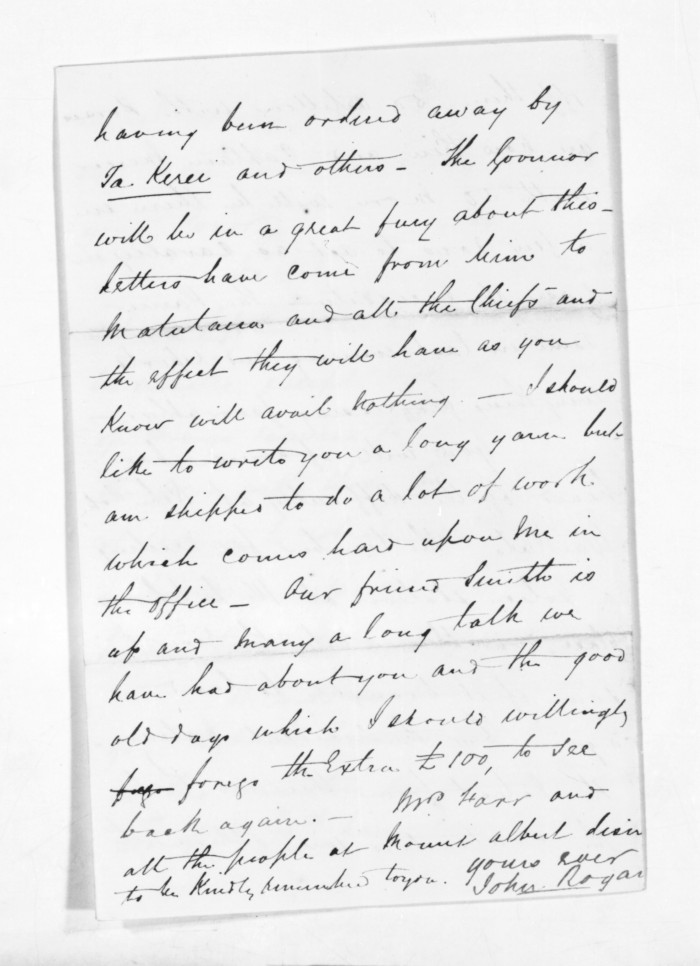 having been ordered away by
Ta Kerei and others - The Governor
will be in a great fury about this -
Letters have come from him to
Matutaera and all the Chiefs and
the effect they will have as you
Know will avail Nothing. - I should
like to write you a long yarn but
am shipped to do a lot of work
which comes hard upon Me in
the office - Our friend Smith is
up and Many a long talk we
have had about you and the good
old days which I should willingly
forego the Extra £100, to See
back again. - Mrs Farr and
all the people at Mount Albert desire
to be Kindly remembered to you. yours ever
John Rogan